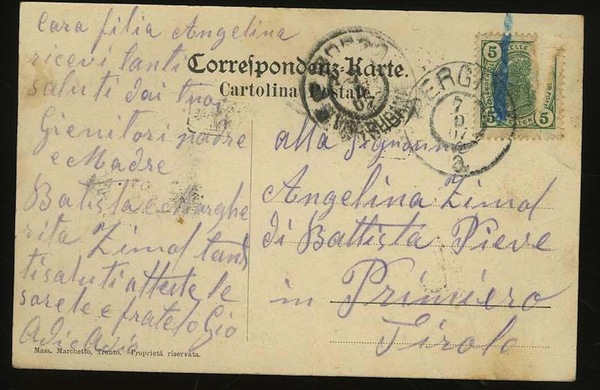 Cara filia Angelina
ricevi tanti
saluti dai tuoi
Gienitori padre
e Madre
Batista e Marghe
rita Zimol tanti
ti saluti atte te le
sorele e fratelo Gio
Adio Adio
Correspondenz-Karte.
Cartolina Postale.
5
5 5
7
07
alla Signorina
Angelina Zimol
di Battista Pieve
in Primiero
Tirolo
Mass. Marchetto, Trento. - Proprietà riservata.